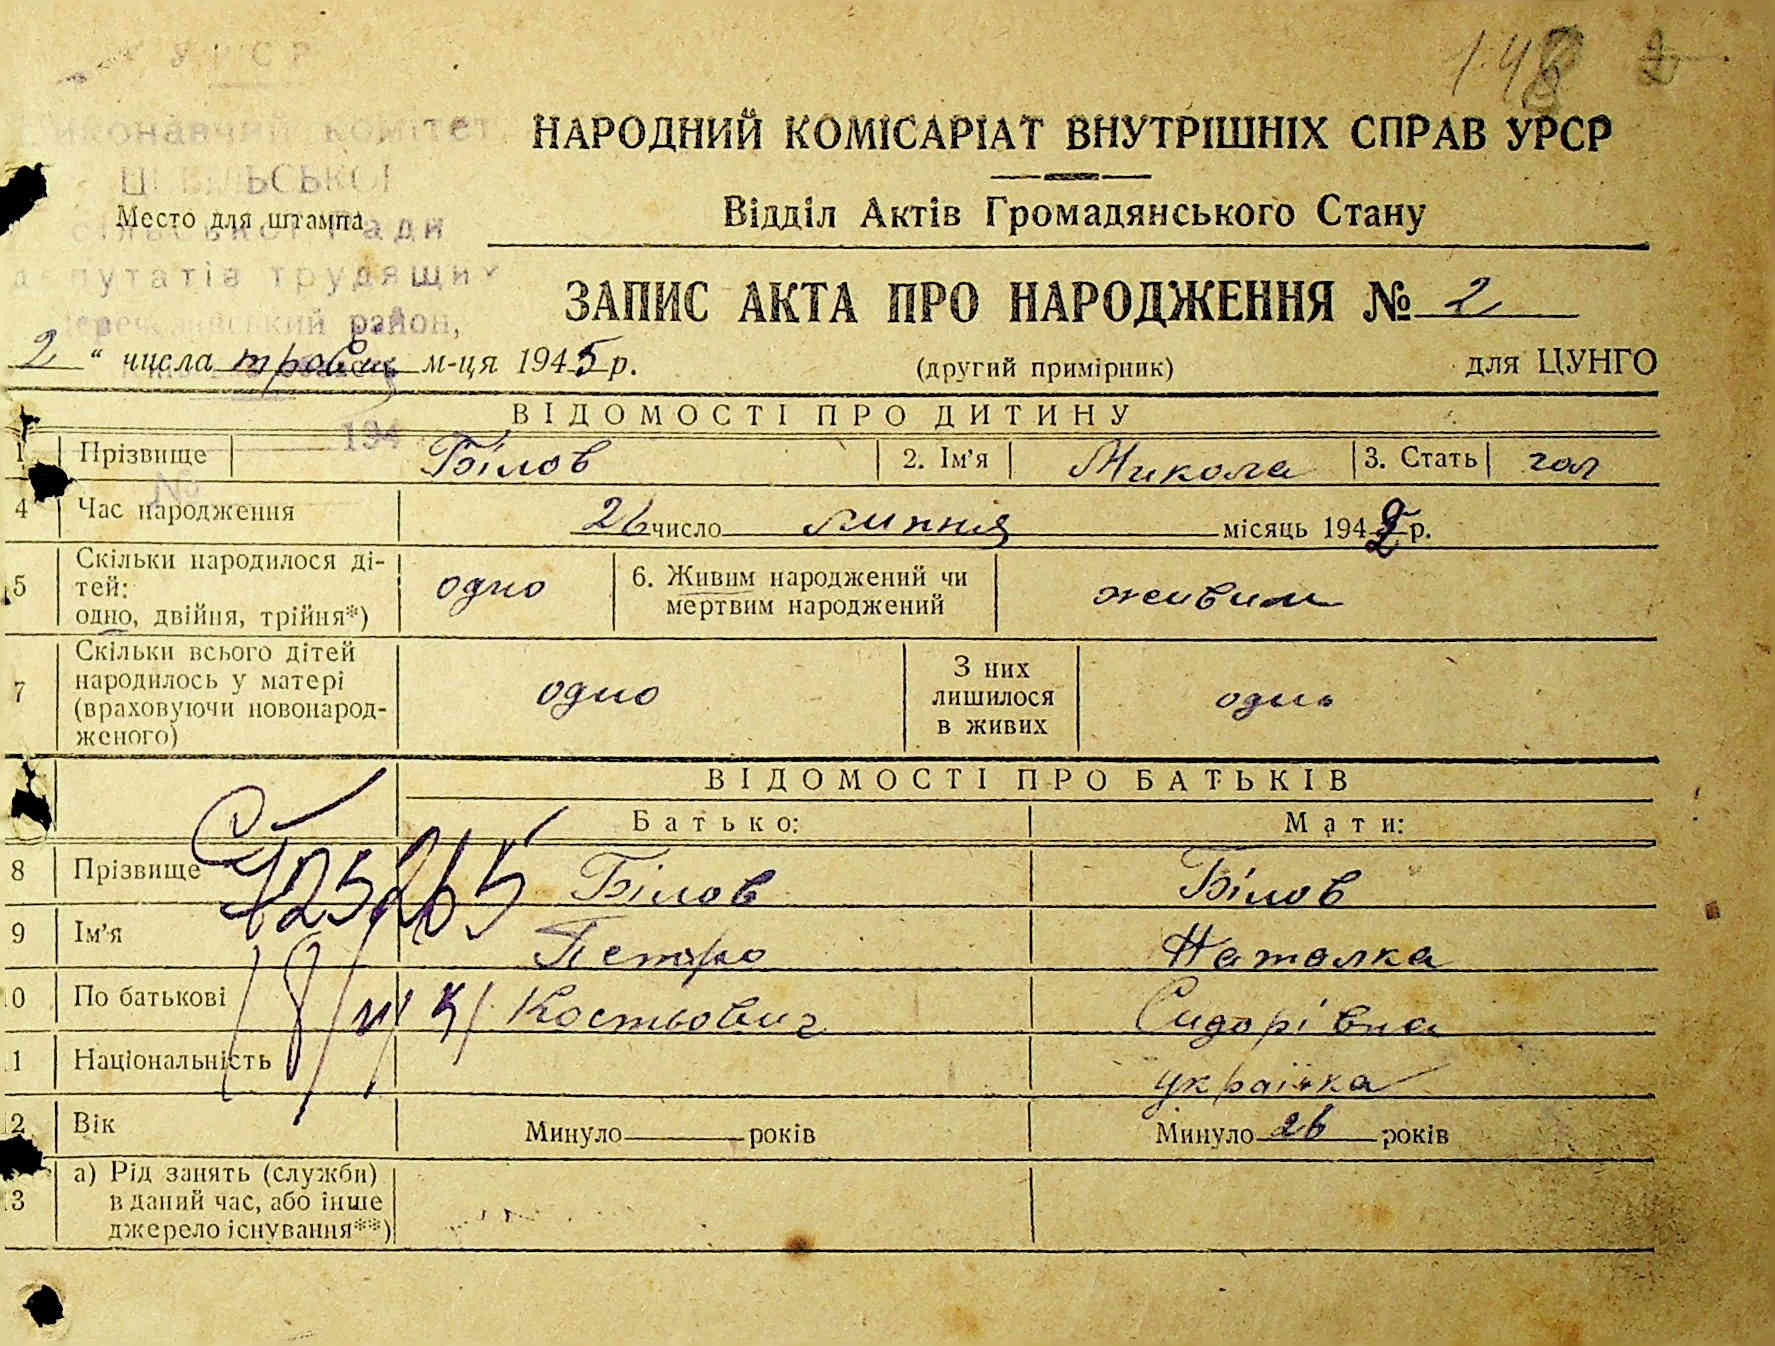 148 2
УРСР
Виконавчий комітет
НАРОДНИЙ КОМІСАРІАТ ВНУТРІШНІХ СПРАВ УРСР
Место для штампа
сільської Ради
Відділ Актів Громадянського Стану
депутатів трудящих
район,
ЗАПИС АКТА ПРО НАРОДЖЕННЯ № 2
2 " числа травня м-ця 1945 р.
(другий примірник)
для ЦУНГО
194
№
ВІДОМОСТІ ПРО ДИТИНУ
1 Прізвище Білов 2. Ім'я Микола 3. Стать чол
4 Час народження 26 число липня місяць 1942 р.
5 Скільки народилося ді-
тей:
одно, двійня, трійня*) одно
6. Живим народжений чи
мертвим народжений живим
7 Скільки всього дітей
народилось у матері
(враховуючи новонарод-
женого) одно
З них
лишилося
в живих одно
ВІДОМОСТІ ПРО БАТЬКІВ
Батько: Мати:
8 Прізвище Білов Білов
9 Ім'я Петро Наталка
0 По батькові Костьович Сидорівна
1 Національність українка
2 Вік Минуло років Минуло 26 років
3 а) Рід занять (служби)
в даний час, або інше
джерело існування**)